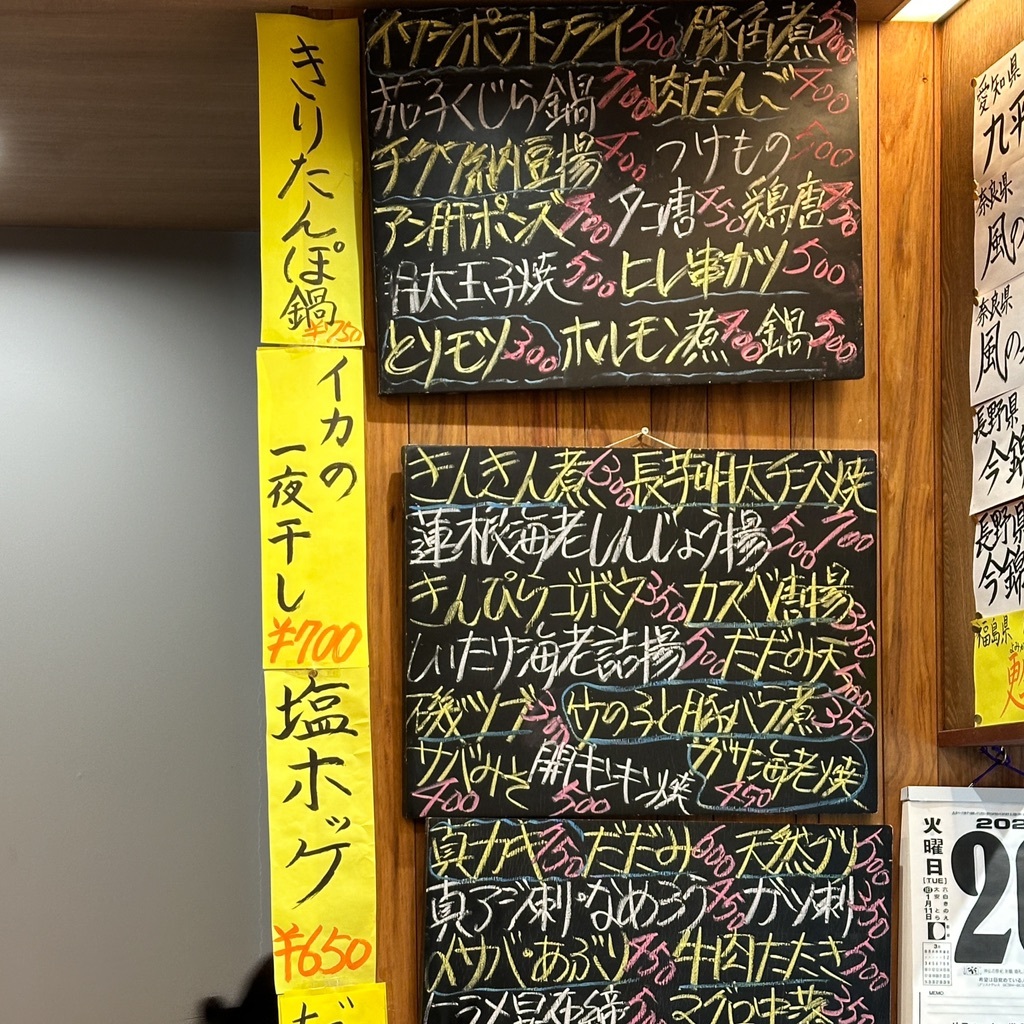 きりたんぽ鍋
¥750
イカの
一夜干し
¥700
塩ホッケ
¥650
イワシポテトフライ500 豚角煮500
茄子くじら鍋700 肉だんご400
チクワ納豆揚400 つけもの500
アン肝ポンズ700 タコ唐750 鶏唐750
明太玉子焼500 ヒレ串カツ500
とりモツ300 ホルモン煮700 鍋500
きんきん煮 長芋明太チーズ焼
蓮根海老しんじょう揚500 700
きんぴらゴボウ350 カスベ唐揚350
しいたけ海老詰揚500 だだみ天500
磯ツブ 豚バラ煮350
サバみそ 開キンキン焼 ガサ海老焼
400 500 450
真カキ750 だだみ600 天然ブリ
真アジ刺・なめろう750 ガツ刺
〆サバ・あぶり 牛肉たたき
ヒラメ昆布締 マグロ中落
愛知県
奈良県
風の
奈良県
風の
長野県
今錦
長野県
今錦
福島県
火曜日
[TUE]